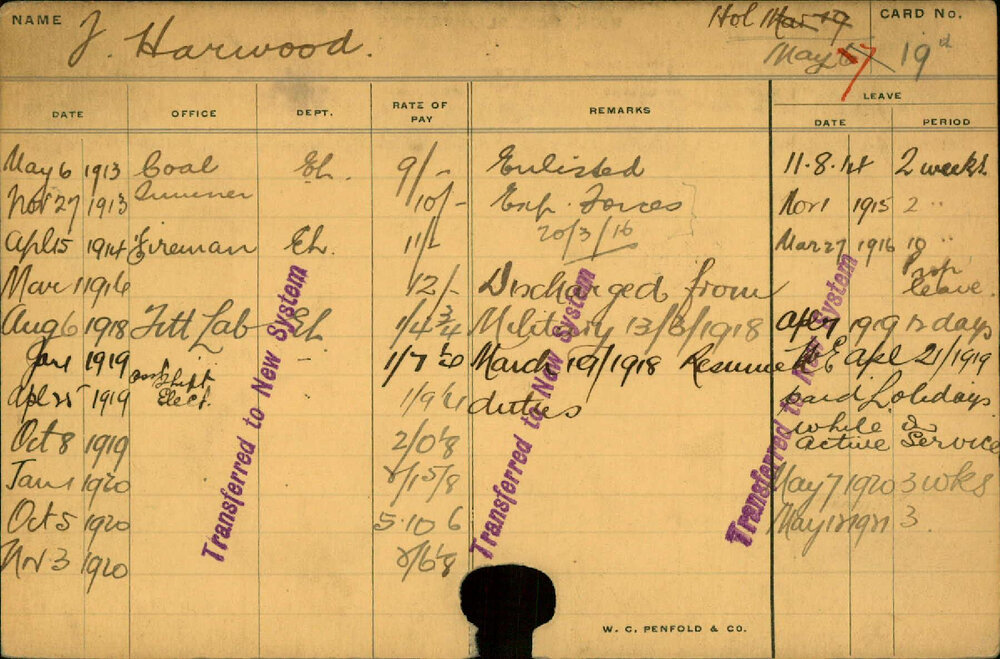 NAME J. Harwood. Hol Mar 19 CARD No.
May 17 19
LEAVE
DATE OFFICE DEPT. RATE OF PAY REMARKS DATE PERIOD
May 6 1913 Coal El. 9/- Enlisted 11.8.14 2 weeks
Nov 27 1913 10/- Exp. Forces Nov 1 1915 2 "
20/3/16
Apl 15 1914 Fireman El. 11/- Mar 27 1916 10 "
Mar 1 1916 12/- Discharged from leave
Aug 6 1918 Fitt Lab El 1/4 3/4 Military 13/3/1918 Apl 7 1919 12 days
Jan 1 1919 1/7 March 19/1918 Resumed Apl 21/1919
Apl 25 1919 Asst Shift Elect. 1/9 duties paid Holidays
while on
Oct 8 1919 2/0 active Service
Jan 1 1920 May 7 1920 3 wks
Oct 5 1920 5.10 6 May 12 1921 3
Nov 3 1920
Transferred to New System
Transferred to New System
Transferred to New System
W. C. PENFOLD & CO.